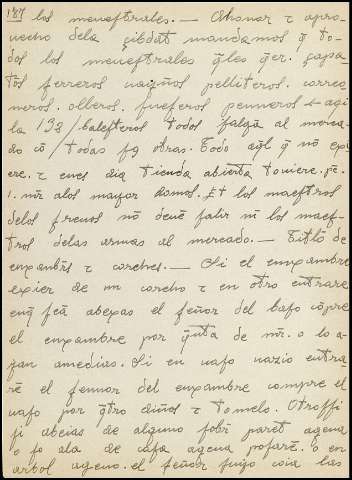 187 los meneſtrales. — A honor τ apro-
uecho dela çibdat mandamos q̃ to-
dos los meneſtrales q̃les q̃er. çapa-
t̃os ferreros pelliteros. corree
neros. olleros. penneros
la 138/ baleſteros todos ſalgã al merca-
do cõ / todas ſꝯ obras. Todo aq̃l q̃ nõ
ere. τ eneſ dia tienda abierta touiere. pe.
1. mr̃ alos mayor domos. Et los maeſtros
delos frenos nõ deuẽ ſalir nĩ los maeſ-
tros delas armas al mercado. — Titlo de
enxanbr̃s τ corchos. — Si el enxambre
exier de un corcho τ en otro entrare
abeias el ſeñor del baſo cõpre
el enxambre por q̃nta de mr̃. o lo a-
yan amedias. Si en uaſo uazio entra-
rẽ el ſennor del enxambre compre el
uaſo por q̃tro din̄os τ tomelo. Otroſſi
ſi abeias de alguno ſobr̃ paret agena
o ſo ala de caſa agena poſarẽ. o en
arbol ageno. el ſeñor ſuyo coia las